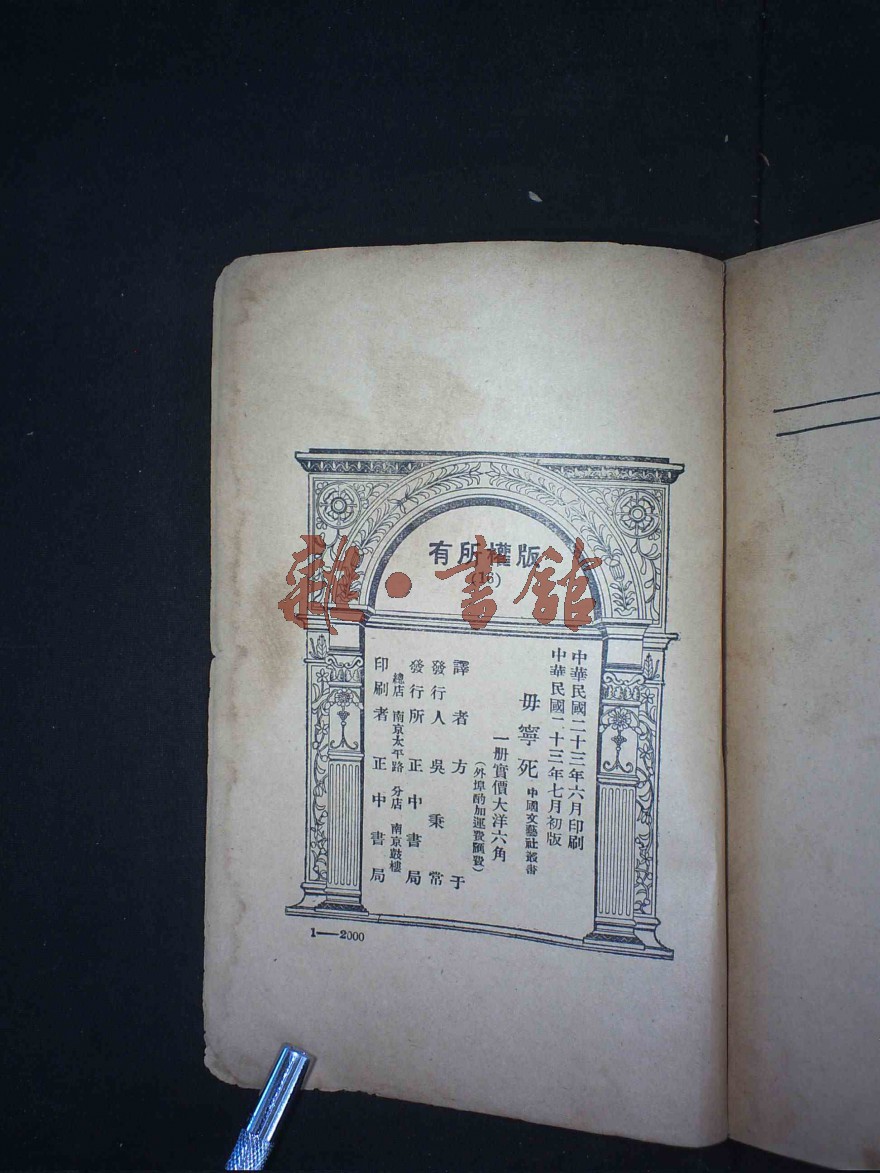 版權所有
(16)
中華民國二十三年六月印刷
中華民國二十三年七月初版
毋寧死 中國文藝社叢書
一册實價大洋六角
(外埠酌加運費匯費)
譯者 方于
發行人 吳秉常
發行所 正中書局
總店 南京太平路 分店 南京鼓樓
印刷者 正中書局
1—2000
雜·書館